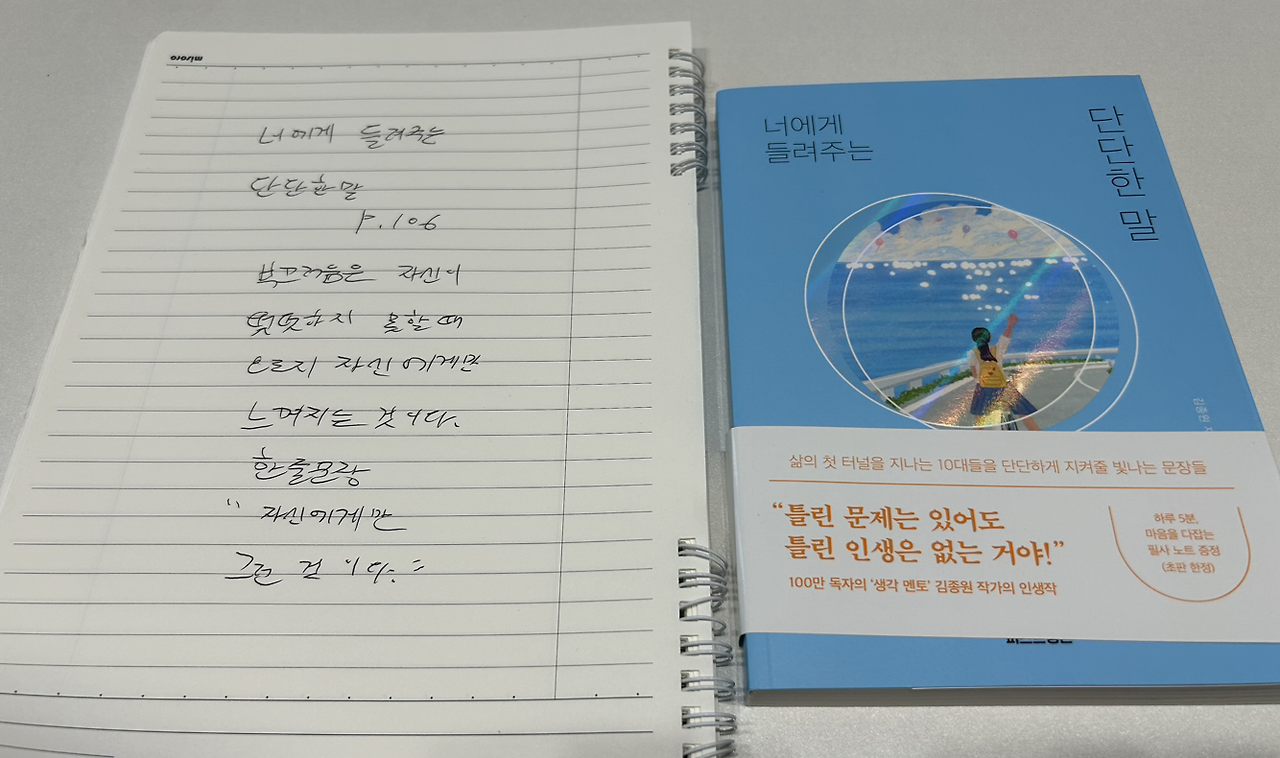 misoro
너에게 들려주는
단단한말
P.106
부끄러움은 자신이
떳떳하지 못할때
오로지 자신에게만
느껴지는 것이다.
한줄문장
"자신에게만
그런 건 이다."
너에게
들려주는
단단한 말
김종원 지
삶의 첫 터널을 지나는 10대들을 단단하게 지켜줄 빛나는 문장들
“틀린 문제는 있어도
틀린 인생은 없는 거야!”
100만 독자의 ‘생각 멘토’ 김종원 작가의 인생작
하루 5분,
마음을 다잡는
필사 노트 증정
(초판 한정)